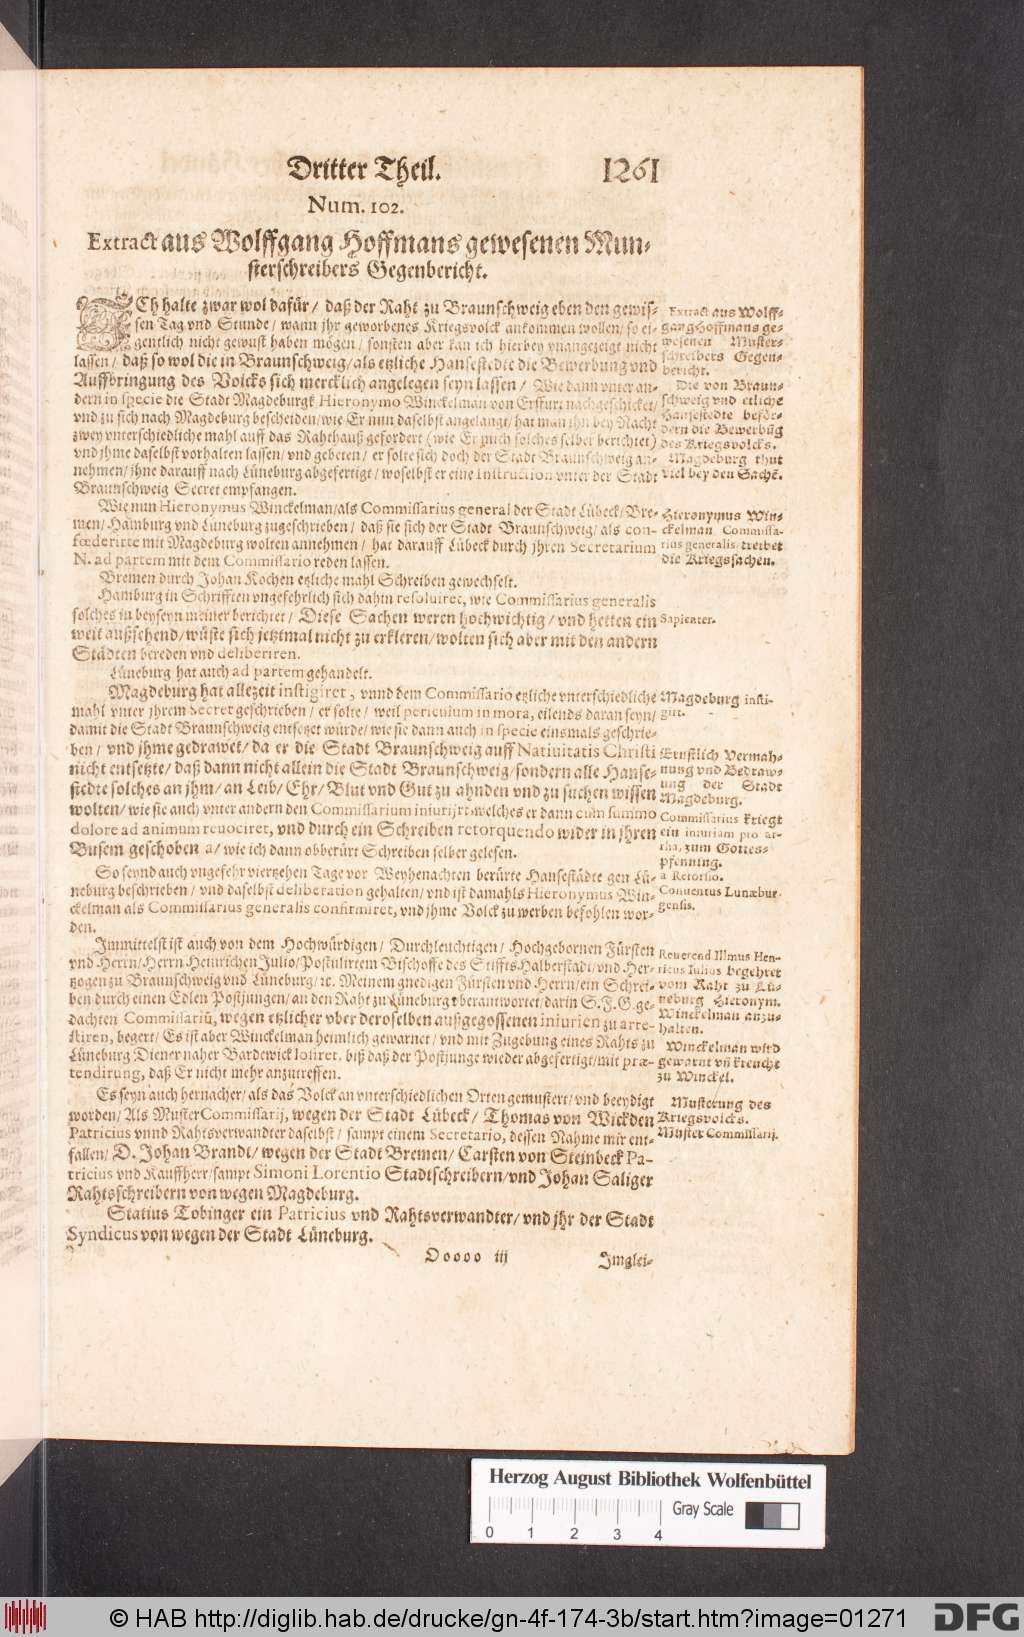 Dritter Theil. 1261
Num. 102.
Extract aus Wolffgang Hoffmans gewesenen Mun-
sterschreibers Gegenbericht.
ICh halte zwar wol dafür / daß der Raht zu Braunschweig eben den gewis-
sen Tag vnd Stunde / wann jhr geworbenes Kriegsvolck ankommen wollen / so ei-
gentlich nicht gewust haben mögen / sonsten aber kan ich hierbey vnangezeigt nicht
lassen / daß so wol die in Braunschweig / als etzliche Hansestedte die Bewerbung vnd
Auffbringung des Volcks sich mercklich angelegen seyn lassen / Wie dann vnter an-
dern in specie die Stadt Magdeburgk Hieronymo Winckelman von Erffurt nachgeschicket /
vnd zu sich nach Magdeburg bescheiden / wie Er nun daselbst angelangt / hat man jhn bey Nacht
zwey vnterschiedliche mahl auff das Rahthauß gefordert (wie Er mich solches selber berichtet)
vnd jhme daselbst vorhalten lassen / vnd gebeten / er solte sich doch der Stadt Braunschweig an-
nehmen / jhne darauff nach Lüneburg abgefertigt / woselbst er eine Instruction vnter der Stadt
Braunschweig Secret empfangen.
Wie nun Hieronymus Winckelman / als Commissarius general der Stadt Lübeck / Bre-
men / Hamburg vnd Lüneburg zugeschrieben / daß sie sich der Stadt Braunschweig / als con-
fœderirte mit Magdeburg wolten annehmen / hat darauff Lübeck durch jhren Secretarium
N. ad partem mit dem Commissario reden lassen.
Bremen durch Johan Kochen etzliche mahl Schreiben gewechselt.
Hamburg in Schrifften vngefehrlich sich dahin resolviret, wie Commissarius generalis
solches in beyseyn meiner berichtet / Diese Sachen weren hochwichtig / vnd hetten ein
weit außsehend / wüste sich jetztmal nicht zu erkleren / wolten sich aber mit den andern
Städten bereden vnd deliberiren.
Lüneburg hat auch ad partem gehandelt.
Magdeburg hat allezeit instigiret, vnnd dem Commissario etzliche vnterschiedliche
mahl vnter jhrem Secret geschrieben / er solte / weil periculum in mora, eilends daran seyn /
damit die Stadt Braunschweig entsetzet würde / wie sie dann auch in specie einsmals geschrie-
ben / vnd jhme gedrawet / da er die Stadt Braunschweig auff Nativitatis Christi
nicht entsetzte / daß dann nicht allein die Stadt Braunschweig / sondern alle Hanse-
stedte solches an jhm / an Leib / Ehr / Blut vnd Gut zu ahnden vnd zu suchen wissen
wolten / wie sie auch vnter andern den Commissarium iniurijrt welches er dann cum summo
dolore ad animum revociret, vnd durch ein Schreiben retorquendo wider in jhren
Busem geschoben a / wie ich dann obberürt Schreiben selber gelesen.
So seynd auch vngefehr viertzehen Tage vor Weyhenachten berürte Hansestädte gen Lü-
neburg beschrieben / vnd daselbst deliberation gehalten / vnd ist damahls Hieronymus Win-
ckelman als Commissarius generalis confirmiret, vnd jhme Volck zu werben befohlen wor-
den.
Immittelst ist auch von dem Hochwürdigen / Durchleuchtigen / Hochgebornen Fürsten
vnd Herrn / Herrn Heinrichen Julio / Postulirtem Bischoffe des Stiffts Halberstadt / vnd Her-
tzogen zu Braunschweig vnd Lüneburg / ꝛc. Meinem gnedigen Fürsten vnd Herrn / ein Schrei-
ben durch einen Edlen Postjungen / an den Raht zu Lüneburg vberantwortet / darin S. F. G. ge-
dachten Commissariũ, wegen etzlicher vber deroselben außgegossenen iniurien zu arre-
stiren, begert / Es ist aber Winckelman heimlich gewarnet / vnd mit Zugebung eines Rahts zu
Lüneburg Diener naher Bardewick losiret, biß daß der Postjunge wieder abgefertigt / mit præ-
tendirung, daß Er nicht mehr anzutreffen.
Es seyn auch hernacher / als das Volck an vnterschiedlichen Orten gemustert / vnd beeydigt
worden / Als Muster Commissarij, wegen der Stadt Lübeck / Thomas von Wickden
Patricius vnnd Rahtsverwandter daselbst / sampt einem Secretario, dessen Nahme mir ent-
fallen / D. Johan Brandt / wegen der Stadt Bremen / Carsten von Steinbeck Pa-
tricius vnd Kauffherr / sampt Simoni Lorentio Stadtschreibern / vnd Johan Saliger
Rahtsschreibern von wegen Magdeburg.
Statius Tobinger ein Patricius vnd Rahtsverwandter / vnd jhr der Stadt
Syndicus von wegen der Stadt Lüneburg.
Ooooo iij Imglei-
Extract aus Wolff-
gang Hoffmans ge-
wesenen Muster-
schreibers Gegen-
bericht.
Die von Braun-
schweig vnd etliche
Hansestedte beför-
dern die Bewerbũg
des Kriegsvolcks.
Magdeburg thut
viel bey den Sachẽ.
Hieronymus Win-
ckelman Commissa-
rius generalis treibet
die Kriegssachen.
Sapienter.
Magdeburg insti-
git.
Ernstlich Vermah-
nung vnd Bedraw-
ung der Stadt
Magdeburg.
Commissarius kriegt
ein iniuriam pro ar-
rha, zum Gottes-
pfenning.
a Retorsio.
Conventus Lunæbur-
gensis.
Reverend Illmus Hen-
ricus Iulius begehret
vom Raht zu Lü-
neburg Hieronym.
Winckelman anzu-
halten.
Winckelman wird
gewarnt vñ kreucht
zu Winckel.
Musterung des
Kriegsvolcks.
Muster Commissarij.
Herzog August Bibliothek Wolfenbüttel
Gray Scale
0 1 2 3 4
© HAB http://diglib.hab.de/drucke/gn-4f-174-3b/start.htm?image=01271 DFG